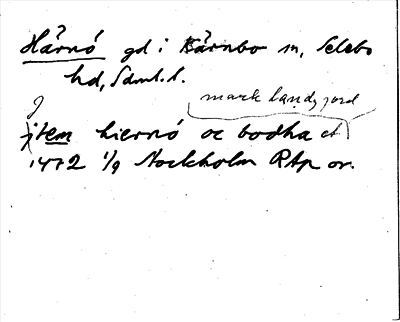 Hårnö gd i Kärnbo sn, Selebo
hd, Sdml. l.
mark landz jord
item hiernö oc bodha et
1472 1/9 Stockholm RAp or.